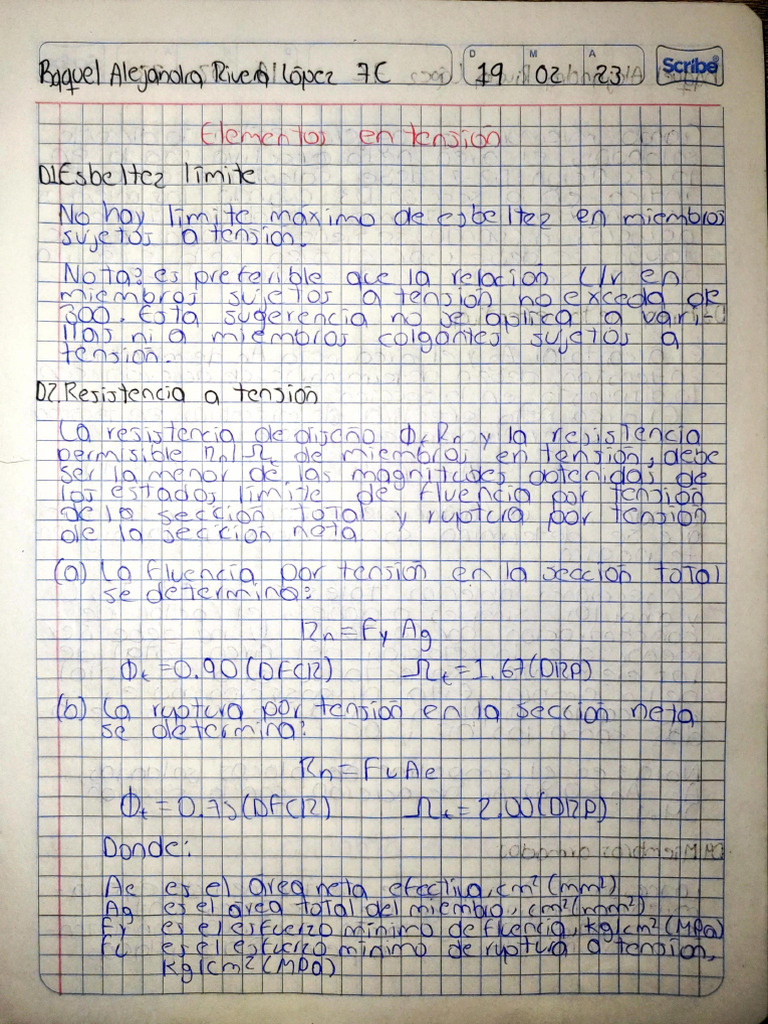 Raquel Alejandra Rivera López 7C D 19 M 02 A 23 Scribe
Elementos en tensión
D1. Esbeltez límite
No hay límite máximo de esbeltez en miembros
sujetos a tensión.
Nota: es preferible que la relación L/r en
miembros sujetos a tensión no exceda de
300. Esta sugerencia no se aplica a vari-
llas ni a miembros colgantes sujetos a
tensión.
D2. Resistencia a tensión
La resistencia de diseño, ΦtRn y la resistencia
permisible Rn/Ωt de miembros en tensión, debe
ser la menor de las magnitudes obtenidas de
los estados límite de fluencia por tensión
de la sección total y ruptura por tensión
de la sección neta
(a) La fluencia por tensión en la sección total
se determina:
Rn=FyAg
Φt=0.90(DFCR) Ωt=1.67(DRP)
(b) La ruptura por tensión en la sección neta
se determina:
Rn=FuAe
Φt=0.75(DFCR) Ωt=2.00(DRP)
Donde:
Ae es el área neta efectiva, cm²(mm²)
Ag es el área total del miembro, cm²(mm²)
Fy es el esfuerzo mínimo de fluencia, kg/cm²(MPa)
Fu es el esfuerzo mínimo de ruptura a tensión,
kg/cm²(MPa)